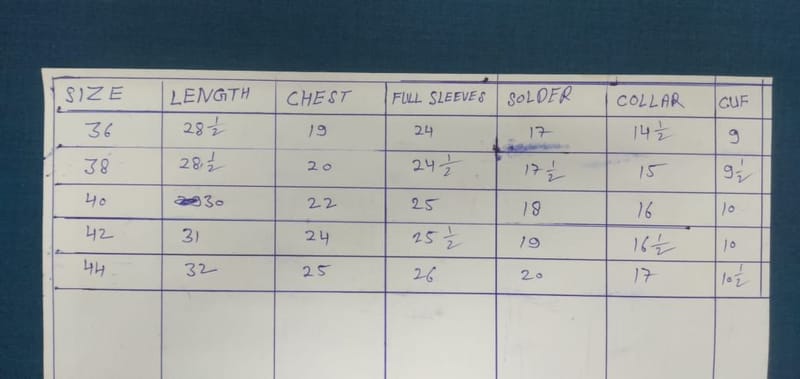 SIZE LENGTH CHEST FULL SLEEVES SOLDER COLLAR CUF
36 28 1/2 19 24 17 14 1/2 9
38 28 1/2 20 24 1/2 17 1/2 15 9 1/2
40 30 22 25 18 16 10
42 31 24 25 1/2 19 16 1/2 10
44 32 25 26 20 17 10 1/2